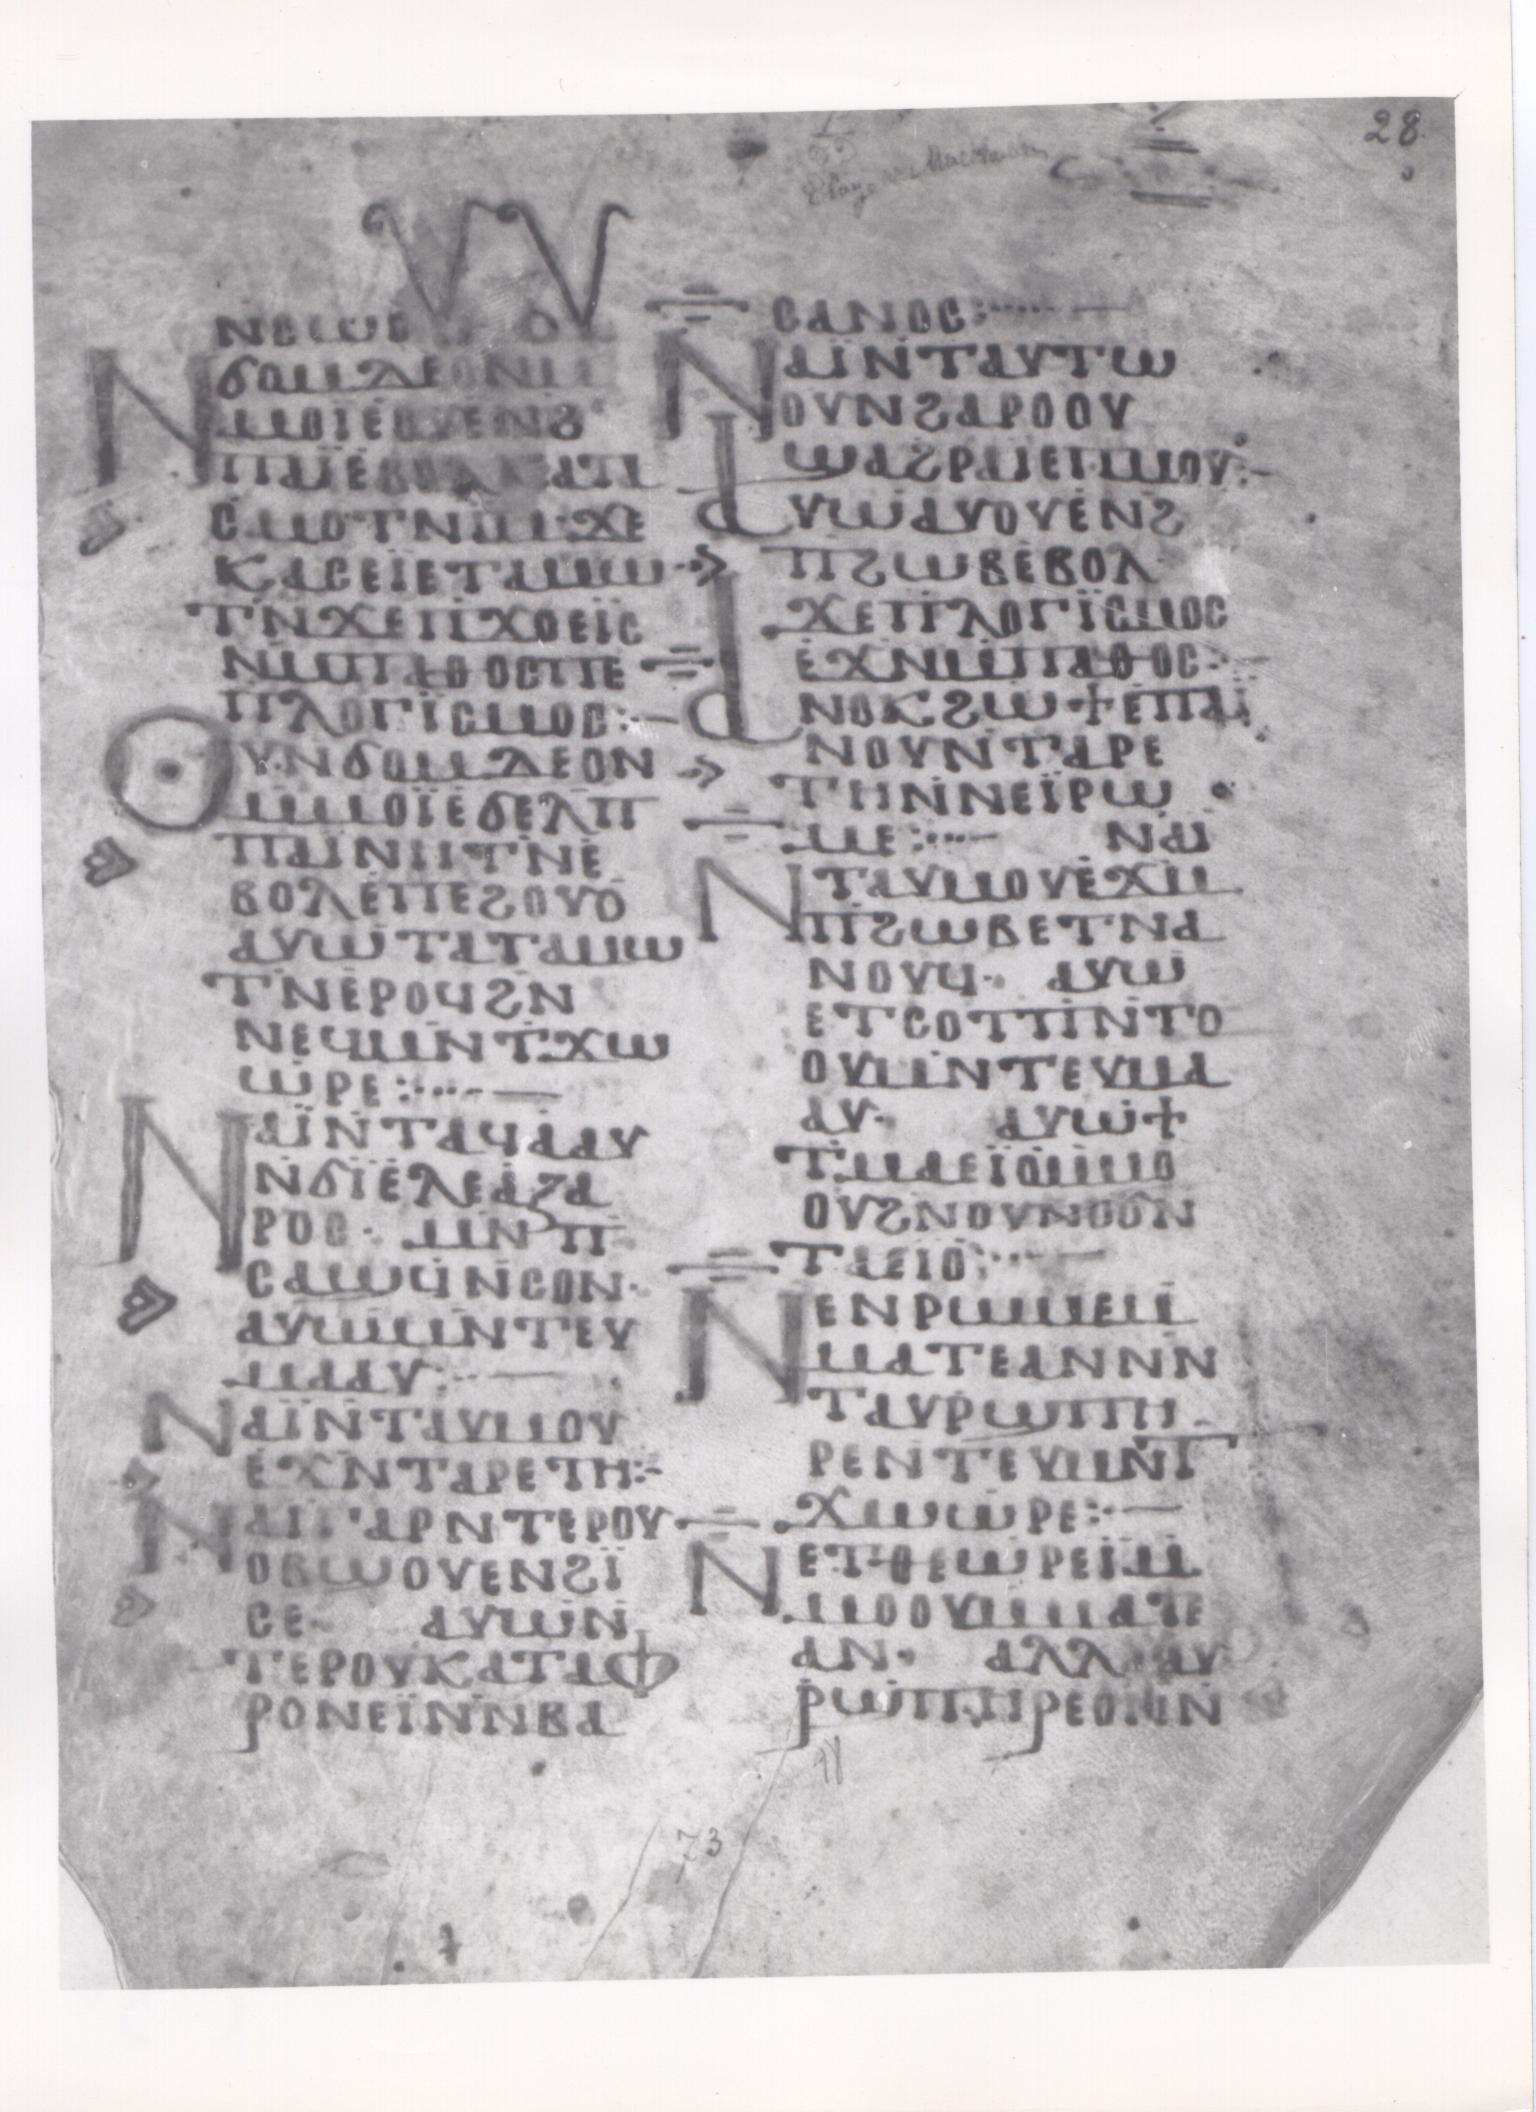 28
ⲛⲥⲱⲥ
ϭⲟⲙ ⲇⲉ ⲟⲛ
Ⲛⲙⲙⲟⲓ̈ ⲉⲟⲩⲉⲛϩ
ⲡⲁⲓ̈ ⲉⲃⲟⲗ
ⲥⲙⲟⲧ ⲛⲓⲙ· ϫⲉ
ⲕⲁⲥ ⲉⲓ̈ⲉⲧⲁⲙⲱ
ⲧⲛ ϫⲉ ⲡϫⲟⲉⲓⲥ
ⲛⲙⲡⲁⲑⲟⲥ ⲡⲉ
ⲡⲗⲟⲅⲓⲥⲙⲟⲥ:—
Ⲟⲩⲛϭⲟⲙ ⲇⲉ ⲟⲛ
ⲙⲙⲟⲓ̈ ⲉϭⲉⲗⲡ
ⲡⲁⲓ̈ ⲛⲏⲧⲛ ⲉ
ⲃⲟⲗ ⲉⲡⲉϩⲟⲩⲟ
ⲁⲩⲱ ⲧⲁⲧⲁⲙⲱ
ⲧⲛ ⲉⲣⲟϥ ϩⲛ
ⲛⲉϥⲙⲛⲧϫⲱ
ⲱⲣⲉ:····—
Ⲛⲁⲓ̈ ⲛⲧⲁϥⲁⲁⲩ
ⲛϭⲓ ⲉⲗⲉⲁⲍⲁ
ⲣⲟⲥ· ⲙⲛ ⲡ
ⲥⲁϣϥ ⲛⲥⲟⲛ·
ⲁⲩⲱ ⲙⲛ ⲧⲉⲩ
ⲙⲁⲁⲩ:—
Ⲛⲁⲓ̈ ⲛⲧⲁⲩⲙⲟⲩ
ⲉϫⲛ ⲧⲁⲣⲉⲧⲏ:-
Ⲛⲁⲓ ⲅⲁⲣ ⲛⲧⲉⲣⲟⲩ
ⲟⲃϣⲟⲩ ⲉⲛϩⲓ̈
ⲥⲉ· ⲁⲩⲱ ⲛ
ⲧⲉⲣⲟⲩⲕⲁⲧⲁⲫ
ⲣⲟⲛⲉⲓ̈ ⲛⲛⲃⲁ
ⲥⲁⲛⲟⲥ:····—
Ⲛⲁⲓ̈ ⲛⲧⲁⲩⲧⲱ
ⲟⲩⲛ ϩⲁⲣⲟⲟⲩ
ϣⲁϩⲣⲁⲓ ⲉⲡⲙⲟⲩ:-
Ⲁⲩⲱ ⲁⲩⲟⲩⲉⲛϩ
ⲡϩⲱⲃ ⲉⲃⲟⲗ·
ϫⲉ ⲡⲗⲟⲅⲓ̈ⲥⲙⲟⲥ
ⲉϫⲛ ⲙⲡⲁⲑⲟⲥ:-
Ⲁⲛⲟⲕ ϩⲱ ϯⲉⲡⲁⲓ
ⲛⲟⲩ ⲛⲧⲁⲣⲉ
ⲧⲏ ⲛⲛⲉⲓ̈ⲣⲱ
ⲙⲉ:···— ⲛⲁⲓ
Ⲛⲧⲁⲩⲙⲟⲩ ⲉϫⲙ
ⲡϩⲱⲃ ⲉⲧⲛⲁ
ⲛⲟⲩϥ· ⲁⲩⲱ
ⲉⲧⲥⲟⲧⲡ ⲛⲧⲟ
ⲟⲩ ⲙⲛ ⲧⲉⲩⲙⲁ
ⲁⲩ· ⲁⲩⲱ ϯ
ⲧⲙⲁⲉⲓ̈ⲟ ⲙⲙⲟ
ⲟⲩ ϩⲛ ⲟⲩⲛⲟϭ ⲛ
ⲧⲁⲉⲓⲟ:··—
Ⲛⲉⲛⲣⲱⲙⲉ ⲙ
ⲙⲁⲧⲉ ⲁⲛ ⲛⲛ
ⲧⲁⲩⲣϣⲡⲏ
ⲣⲉ ⲛⲧⲉⲩⲙⲛⲧ
ϫⲱⲱⲣⲉ:·—
Ⲛⲉⲧⲑⲉⲱⲣⲉⲓ̈ ⲙ
ⲙⲟⲟⲩ ⲙⲙⲁⲧⲉ
ⲁⲛ· ⲁⲗⲗⲁ ⲁⲩ
ⲣϣⲡⲏⲣⲉ
73